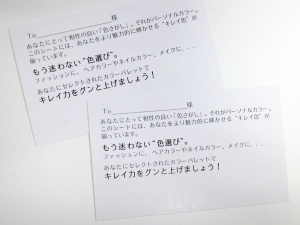 To 様
あなたにとって相性の良い「色さがし」。それがパーソナルカラー。
このシートには、あなたをより魅力的に輝かせる“キレイ色”が
揃っています。
もう迷わない“色選び”。
ファッションに、ヘアカラーやネイルカラー、メイクに．．．
あなたにセレクトされたカラーパレットで
キレイ力をグンと上げましょう！
To 様
あなたにとって相性の良い「色さがし」。それがパーソナルカラー。
このシートには、あなたをより魅力的に輝かせる“キレイ色”が
揃っています。
もう迷わない“色選び”。
ファッションに、ヘアカラーやネイルカラー、メイクに．．．
あなたにセレクトされたカラーパレットで
キレイ力をグンと上げましょう！